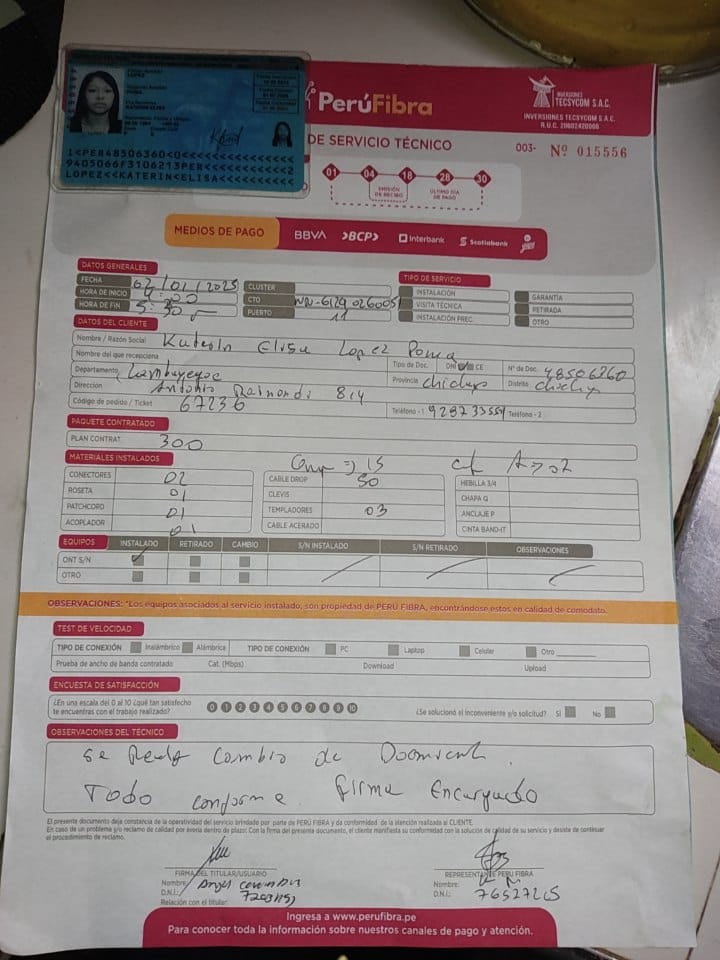 LOPEZ
1<PER48506360<0<<<<<<<<<<<<<<<
9405066F3106213PER<<<<<<<<<<<2
LOPEZ<<KATERIN<ELISA<<<<<<<<<<
PerúFibra
INVERSIONES
TECSYCOM S.A.C.
INVERSIONES TECSYCOM S.A.C.
R.U.C. 20602420966
DE SERVICIO TÉCNICO
003- Nº 015556
01 04 18 28 30
EMISIÓN DE RECIBO
ÚLTIMO DÍA DE PAGO
MEDIOS DE PAGO BBVA >BCP> Interbank Scotiabank
DATOS GENERALES TIPO DE SERVICIO
FECHA 02/01/2025 CLUSTER INSTALACIÓN GARANTÍA
HORA DE INICIO 4:00 CTO VISITA TÉCNICA RETIRADA
HORA DE FIN 5:30 PUERTO 11 INSTALACIÓN PREC. OTRO
DATOS DEL CLIENTE
Nombre / Razón Social Katerin Elisa Lopez Poma
Nombre del que recepciona Tipo de Doc. DNI CE Nº de Doc. 48506360
Departamento Lambayeque Provincia Chiclayo Distrito Chiclayo
Dirección Antonio Raimondi 814
Código de pedido / Ticket 67236 Teléfono - 1 Teléfono - 2
PAQUETE CONTRATADO
PLAN CONTRAT. 300
MATERIALES INSTALADOS
CONECTORES 02 CABLE DROP 50 HEBILLA 3/4
ROSETA 01 CLEVIS CHAPA Q
PATCHCORD 01 TEMPLADORES 03 ANCLAJE P
ACOPLADOR 01 CABLE ACERADO CINTA BAND-IT
EQUIPOS INSTALADO RETIRADO CAMBIO S/N INSTALADO S/N RETIRADO OBSERVACIONES
ONT S/N
OTRO
OBSERVACIONES: *Los equipos asociados al servicio instalado, son propiedad de PERÚ FIBRA, encontrándose estos en calidad de comodato.
TEST DE VELOCIDAD
TIPO DE CONEXIÓN Inalámbrico Alámbrica TIPO DE CONEXIÓN PC Laptop Celular Otro
Prueba de ancho de banda contratado Cat. (Mbps) Download Upload
ENCUESTA DE SATISFACCIÓN
¿En una escala del 0 al 10 ¿qué tan satisfecho
te encuentras con el trabajo realizado? 0 1 2 3 4 5 6 7 8 9 10 ¿Se solucionó el inconveniente y/o solicitud? Sí No
OBSERVACIONES DEL TÉCNICO
Se cambio de
Todo conforme firma Encargado
El presente documento deja constancia de la operatividad del servicio brindado por parte de PERÚ FIBRA y da conformidad de la atención realizada al CLIENTE.
En caso de un problema y/o reclamo de calidad por avería dentro de plazo: Con la firma del presente documento, el cliente manifiesta su conformidad con la solución de calidad de su servicio y desiste de continuar
el procedimiento de reclamo.
FIRMA DEL TITULAR/USUARIO REPRESENTANTE PERÚ FIBRA
Nombre: Angel Nombre:
D.N.I.: D.N.I.: 76527205
Relación con el titular:
Ingresa a www.perufibra.pe
Para conocer toda la información sobre nuestros canales de pago y atención.